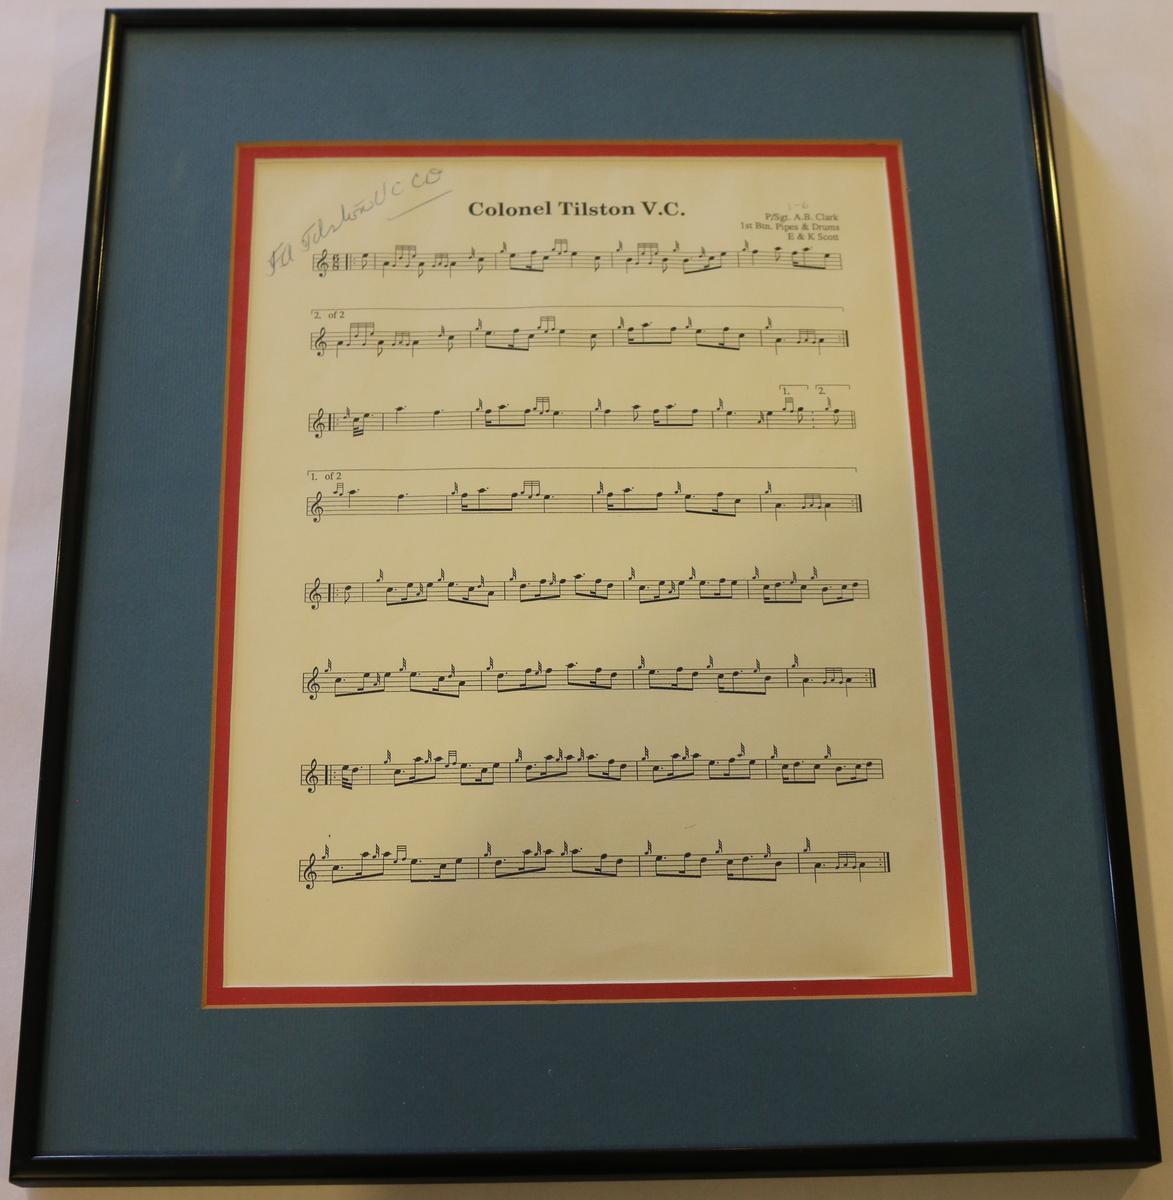 FA Tilston VC CD
Colonel Tilston V.C.
1-6
P/Sgt. A.B. Clark
1st Btn. Pipes & Drums
E & K Scott
6
8
2. of 2
1. 2.
1. of 2